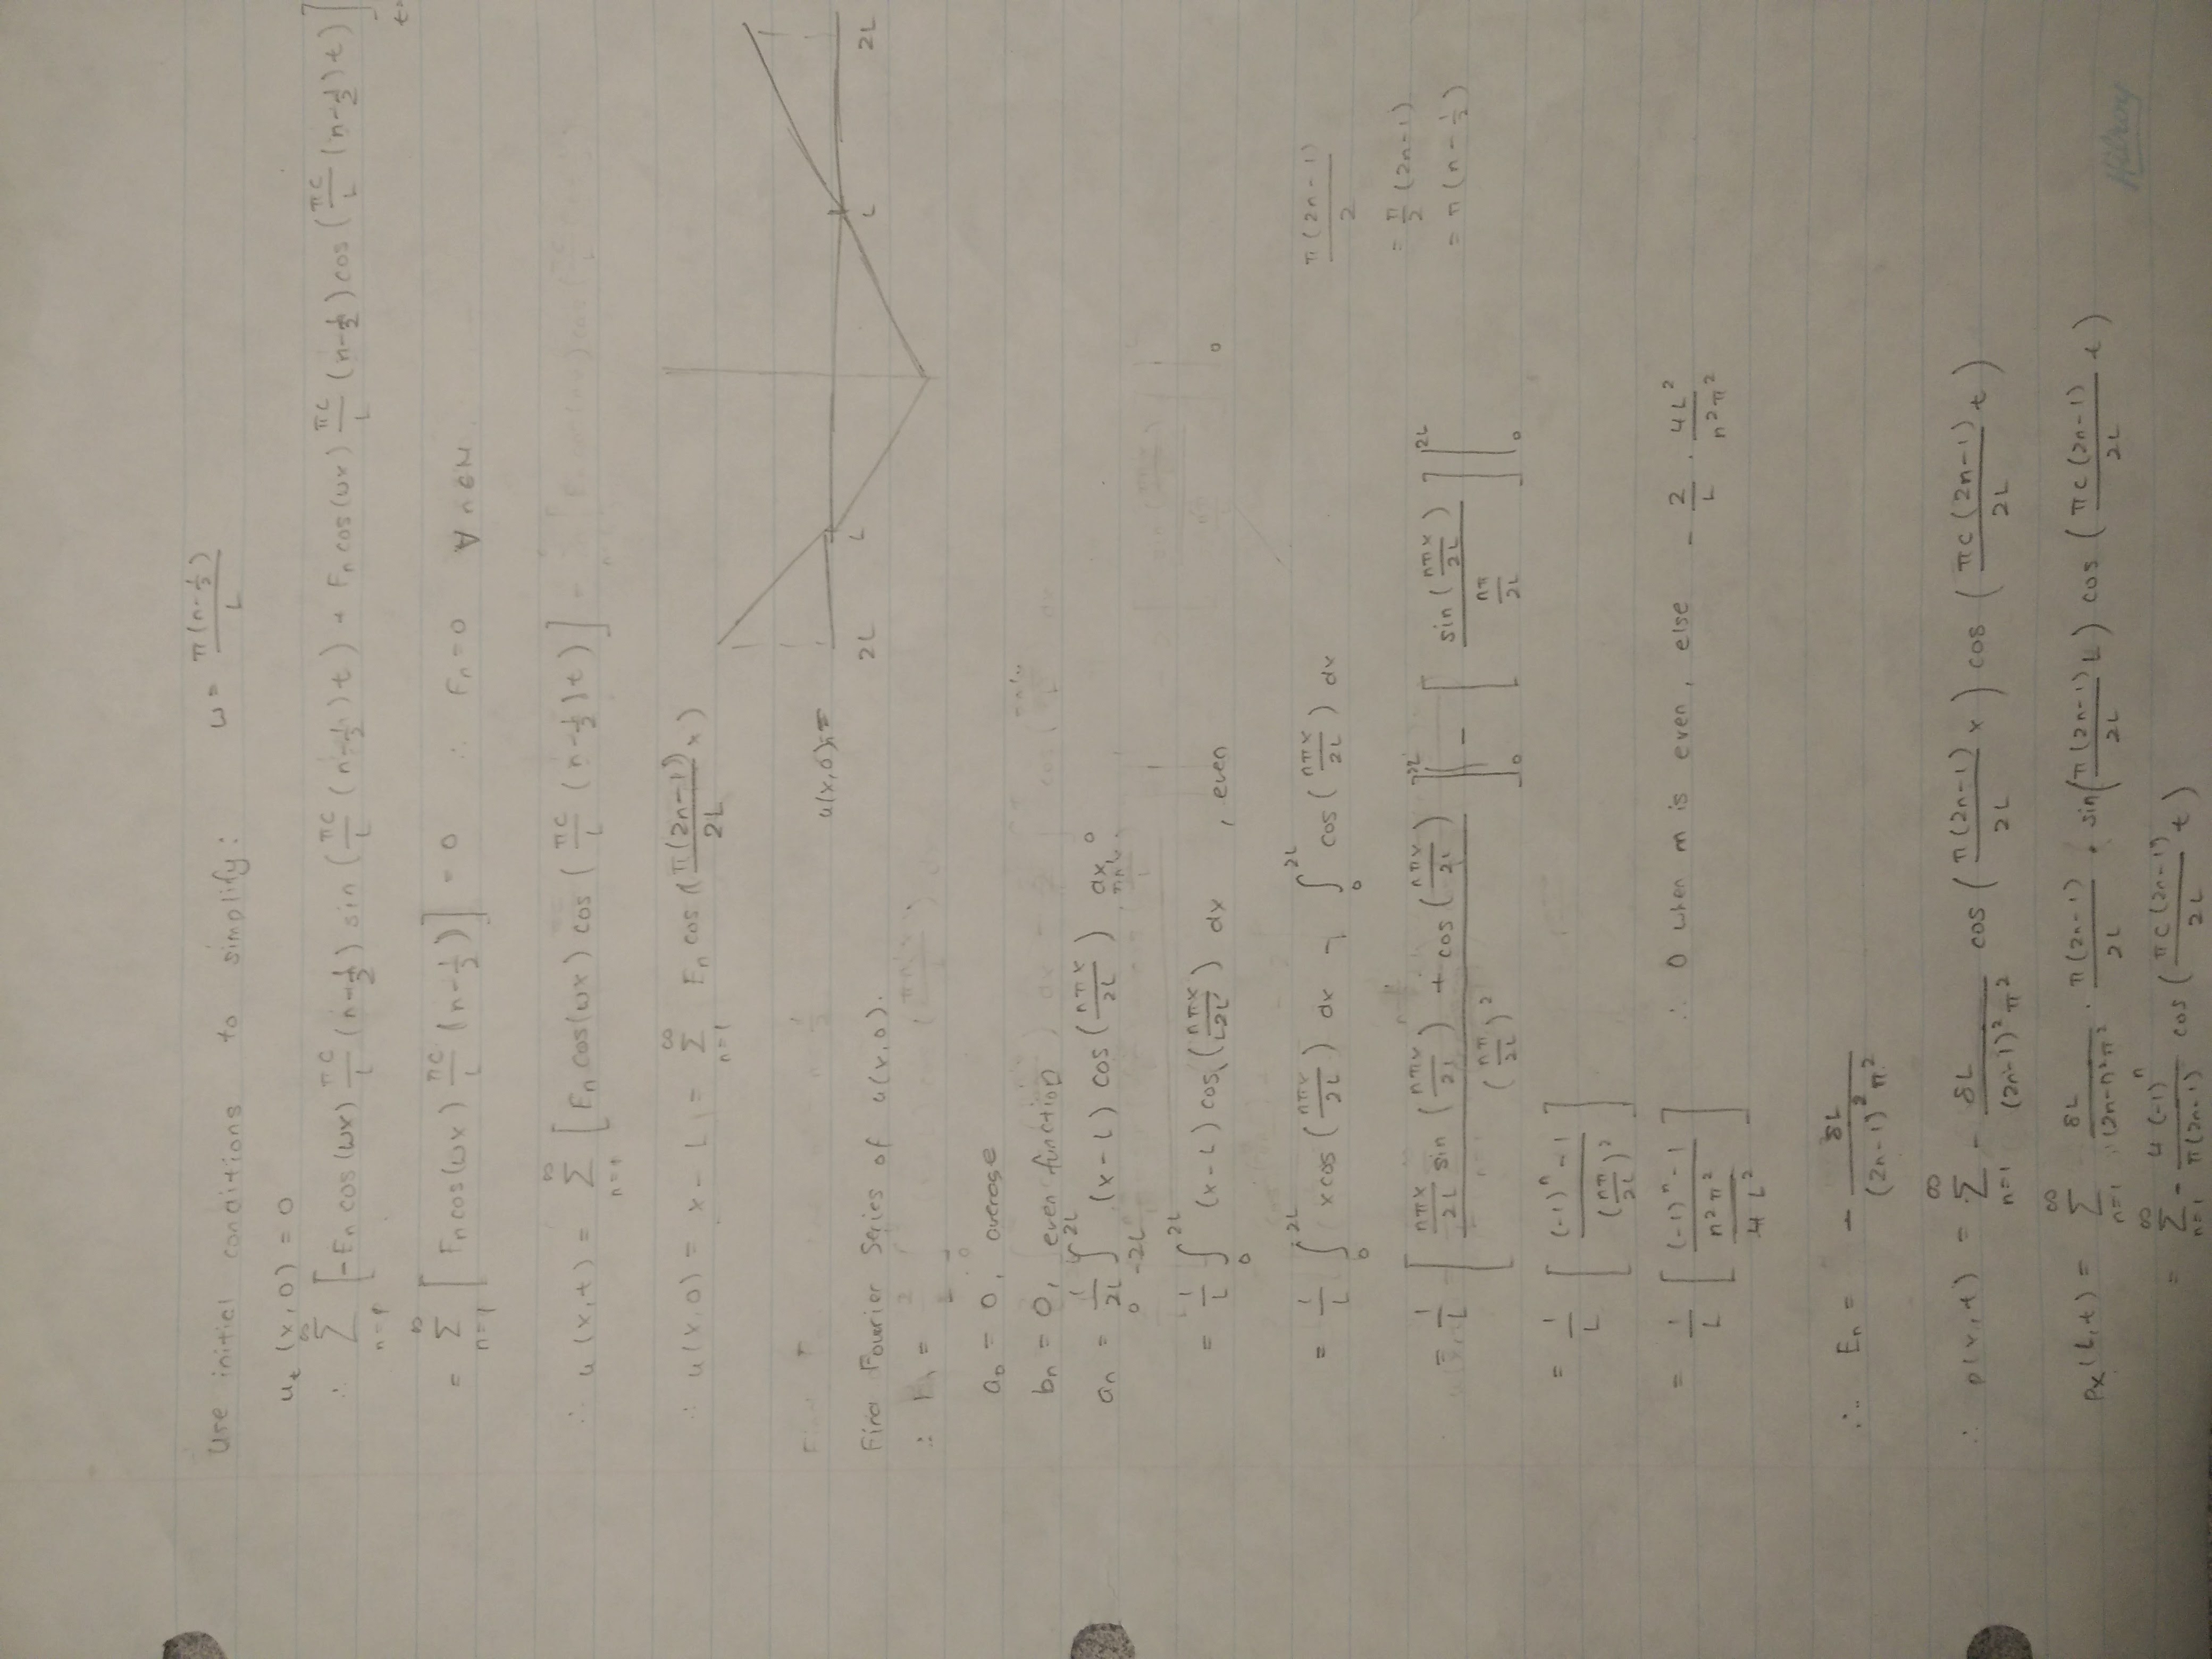 Use initial conditions to simplify: ω = π(n-½)/L
u_t (x,0) = 0
∴ ∞Σn=1 [-En cos(ωx) πc/L (n-½) sin(πc/L (n-½)t) + Fn cos(ωx) πc/L (n-½) cos(πc/L (n-½)t)]
= ∞Σn=1 [Fn cos(ωx) πc/L (n-½)] = 0 ∴ Fn = 0 ∀ n∈N.
∴ u(x,t) = ∞Σn=1 [En cos(ωx) cos(πc/L (n-½)t)]
∴ u(x,0) = x - L, = ∞Σn=1 En cos(π(2n-1)/2L x)
u(x,0)=
2L L L 2L
Find Fourier Series of u(x,0).
∴
a0 = 0, average
bn = 0, even function
an = 1/2L ∫-2L^2L (x-L) cos(nπx/2L) dx
= 1/L ∫0^2L (x-L) cos(nπx/2L) dx , even
= 1/L ∫0^2L x cos(nπx/2L) dx - ∫0^2L cos(nπx/2L) dx
π(2n-1)/2
= π/2 (2n-1)
= π(n-½)
= 1/L [ nπx/2L sin(nπx/2L) + cos(nπx/2L) / (nπ/2L)² ]0^2L - [ sin(nπx/2L) / nπ/2L ]0^2L 0
= 1/L [ (-1)ⁿ-1 / (nπ/2L)² ]
= 1/L [ (-1)ⁿ-1 / n²π²/4L² ] ∴ 0 when n is even, else - 2/L · 4L²/n²π²
∴ En = - 8L/(2n-1)²π²
∴ p(x,t) = ∞Σn=1 - 8L/(2n-1)²π² cos(π(2n-1)/2L x) cos(πc(2n-1)/2L t)
Px(L,t) = ∞Σn=1 8L/(2n-1)²π² · π(2n-1)/2L · sin(π(2n-1)/2L L) cos(πc(2n-1)/2L t)
= ∞Σn=1 - 4(-1)ⁿ/π(2n-1) cos(πc(2n-1)/2L t)
Hilroy